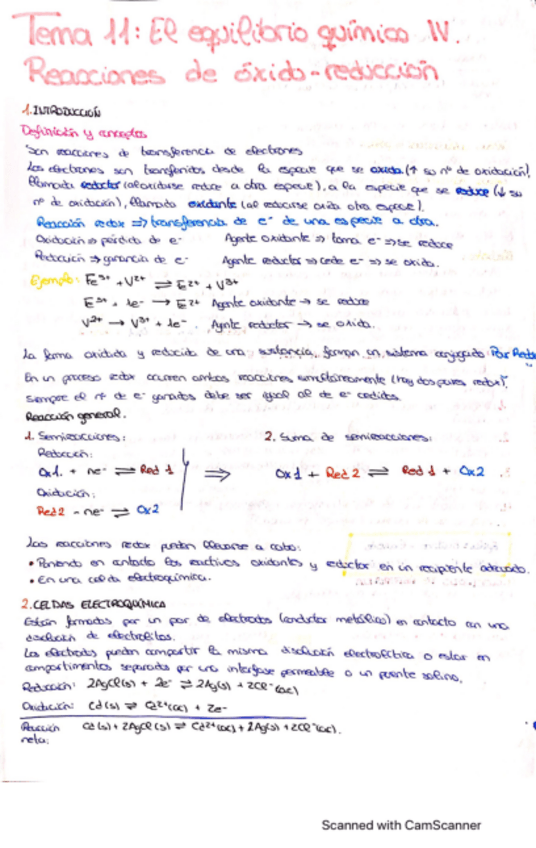 Tema 11: El equilibrio químico IV.
Reacciones de óxido-reducción
1. INTRODUCCIÓN
Definición y conceptos
Son reacciones de transferencia de electrones
Los electrones son transferidos desde la especie que se oxida (↑ su nº de oxidación),
llamada reductor (al oxidarse reduce a otra especie), a la especie que se reduce (↓ su
nº de oxidación), llamada oxidante (al reducirse oxida otra especie).
Reacción redox => transferencia de e- de una especie a otra.
Oxidación => pérdida de e- Agente oxidante => toma e- => se reduce
Reducción => ganancia de e- Agente reductor => cede e- => se oxida.
Ejemplo: Fe3+ + V2+ ⇌ E2+ + V3+
E3+ + 1e- → E2+ Agente oxidante → se reduce
V2+ → V3+ + 1e- Agente reductor → se oxida.
La forma oxidada y reducida de una sustancia, forman un sistema conjugado Par Redox
En un proceso redox ocurren ambas reacciones simultáneamente (hay dos pares redox),
siempre el nº de e- ganados debe ser igual al de e- cedidos.
Reacción general.
1. Semirreacciones: 2. Suma de semirreacciones:
Reducción:
Ox1. + ne- ⇌ Red 1 ⇒ Ox1 + Red2 ⇌ Red 1 + Ox2
Oxidación:
Red2 - ne- ⇌ Ox2
Las reacciones redox pueden llevarse a cabo:
• Poniendo en contacto los reactivos oxidantes y reductor en un recipiente adecuado.
• En una celda electroquímica.
2. CELDAS ELECTROQUÍMICA
Están formadas por un par de electrodos (conductor metálico) en contacto con una
disolución de electrolitos.
Los electrodos pueden compartir la misma disolución electrolítica o estar en
compartimentos separados por una interfase permeable o un puente salino.
Reducción: 2AgCl(s) + 2e- ⇌ 2Ag(s) + 2Cl-(ac)
Oxidación: Cd(s) ⇌ Cd2+(ac) + 2e-
Reacción Cd(s) + 2AgCl(s) ⇌ Cd2+(ac) + 2Ag(s) + 2Cl-(ac).
neta:
Scanned with CamScanner